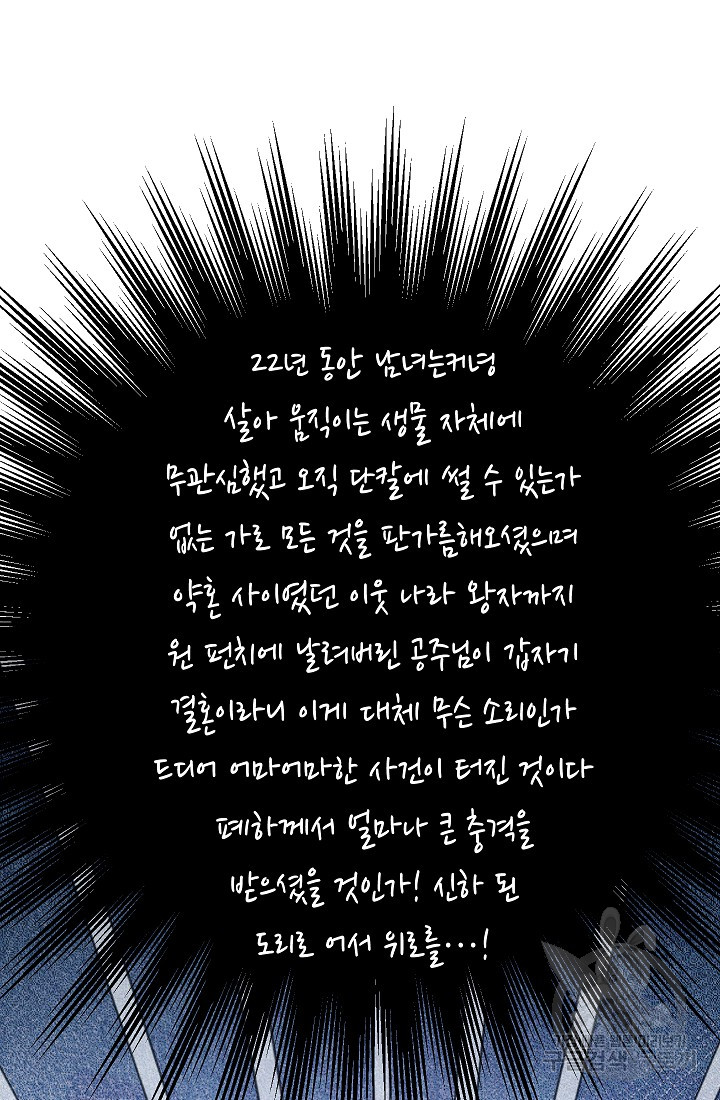 22년 동안 남녀는커녕
살아 움직이는 생물 자체에
무관심했고 오직 단칼에 썰 수 있는가
없는 가로 모든 것을 판가름해오셨으며
약혼 사이였던 이웃 나라 왕자까지
원 펀치에 날려버린 공주님이 갑자기
결혼이라니 이게 대체 무슨 소리인가
드디어 어마어마한 사건이 터진 것이다
폐하께서 얼마나 큰 충격을
받으셨을 것인가! 신하 된
도리로 어서 위로를…!
구글검색